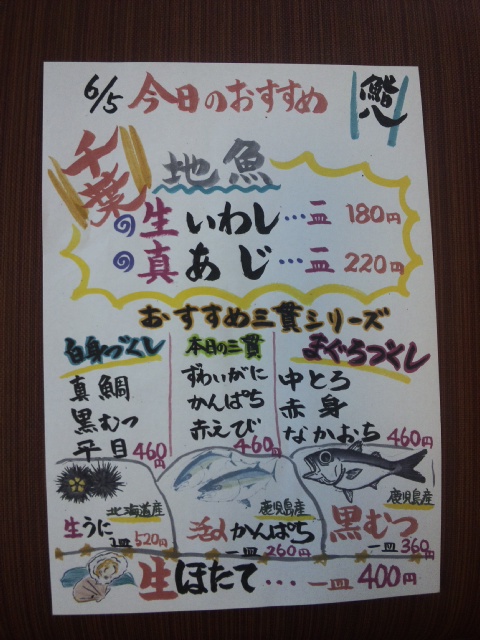 6/5 今日のおすすめ
鮨八
千葉
地魚
生いわし…一皿 180円
真あじ…一皿 220円
おすすめ三貫シリーズ
白身づくし
真鯛
黒むつ
平目 460円
本日の三貫
ずわいがに
かんぱち
赤えび 460円
まぐろづくし
中とろ
赤身
なかおち 460円
北海道産
生うに
一皿 520円
鹿児島産
活〆かんぱち
一皿 260円
鹿児島産
黒むつ
一皿 360円
生ほたて…一皿 400円